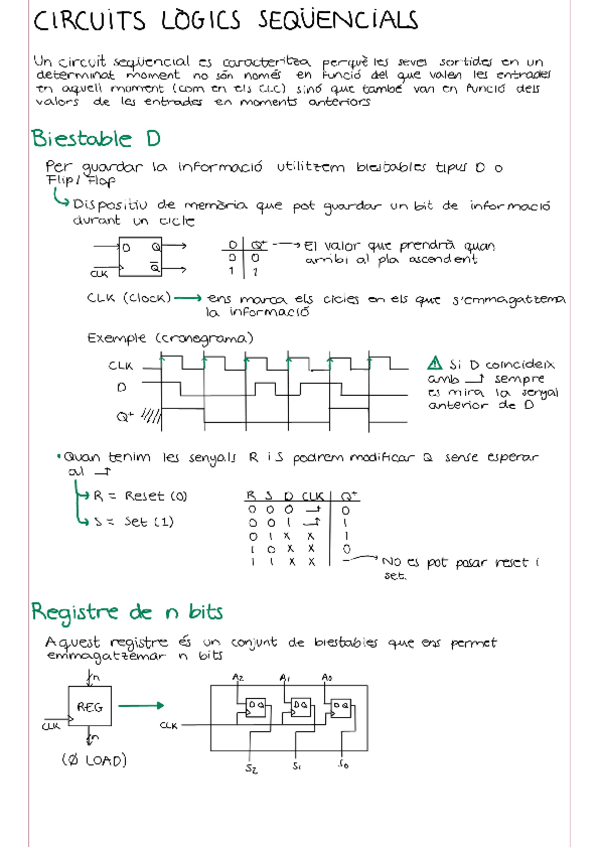 CIRCUITS LÒGICS SEQÜENCIALS
Un circuit seqüencial es caracteritza perquè les seves sortides en un
determinat moment no són només en funció del que valen les entrades
en aquell moment (com en els CLC) sinó que també van en funció dels
valors de les entrades en moments anteriors
Biestable D
Per guardar la informació utilitzem biestables tipus D o
Flip/Flop
Dispositiu de memòria que pot guardar un bit de informació
durant un cicle
D Q
Q̅
CLK
D Q⁺
0 0
1 1
El valor que prendrà quan
arribi al pla ascendent
CLK (Clock) → ens marca els cicles en els que s'emmagatzema
la informació
Exemple (cronograma)
CLK
D
Q⁺
Si D coincideix
amb sempre
es mira la senyal
anterior de D
• Quan tenim les senyals R i S podrem modificar Q sense esperar
al
R = Reset (0)
S = Set (1)
R S D CLK Q⁺
0 0 0 0
0 0 1 1
0 1 X X 1
1 0 X X 0
1 1 X X -
No es pot posar reset i
set.
Registre de n bits
Aquest registre és un conjunt de biestables que ens permet
emmagatzemar n bits
n
REG
CLK
n
(Ø LOAD)
A2 A1 A0
D Q D Q D Q
CLK
S2 S1 S0